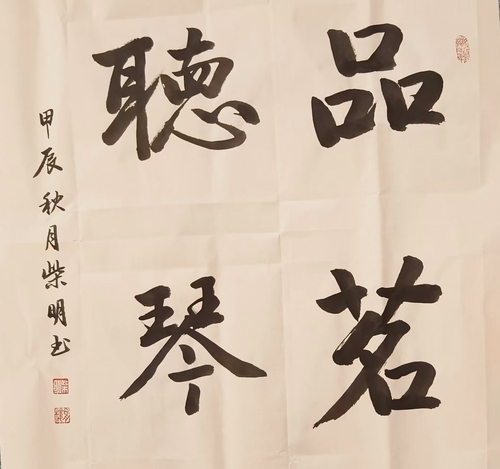 品茗
聽琴
甲辰秋月柴明书